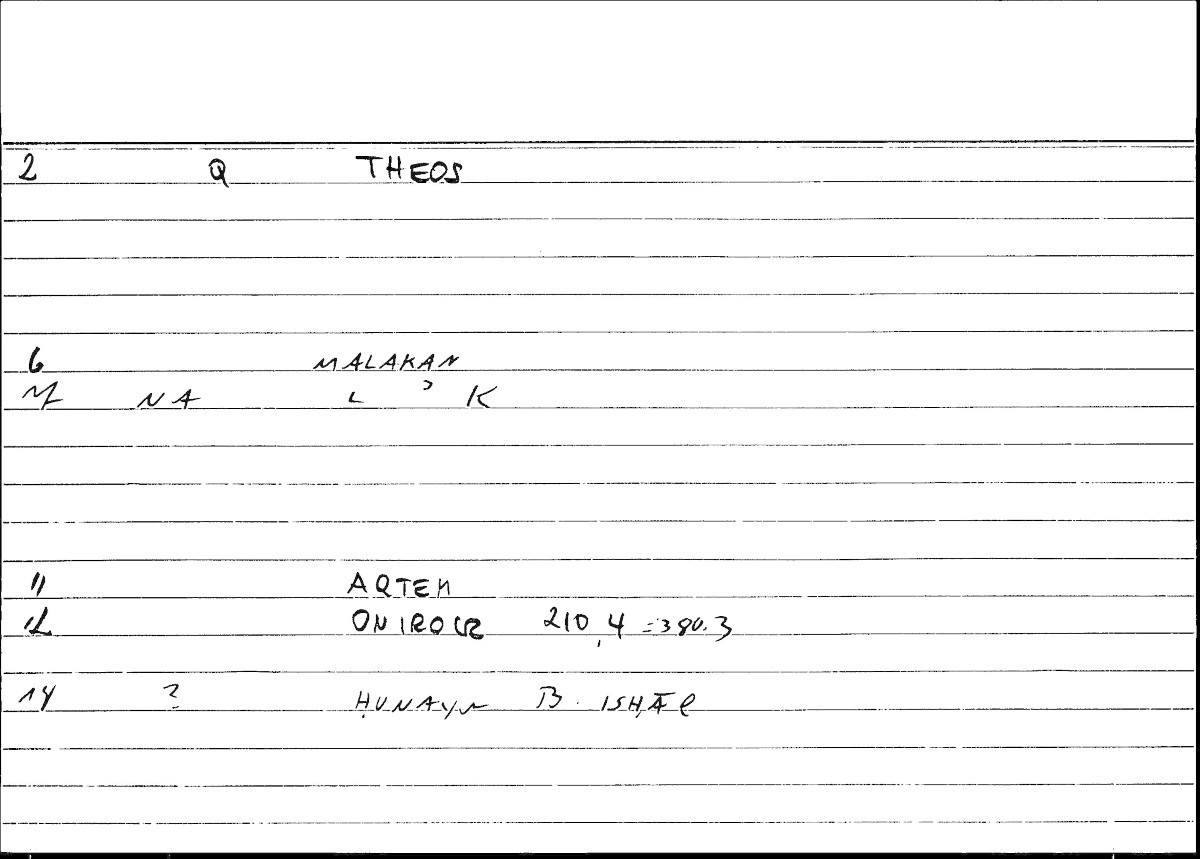 2 Q THEOS
6 MALAKAN
7 NA L ʾ K
11 ARTEM
12 ONIROCR 210,4 = 380.3
14 ? ḤUNAYN B. ISḤĀQ